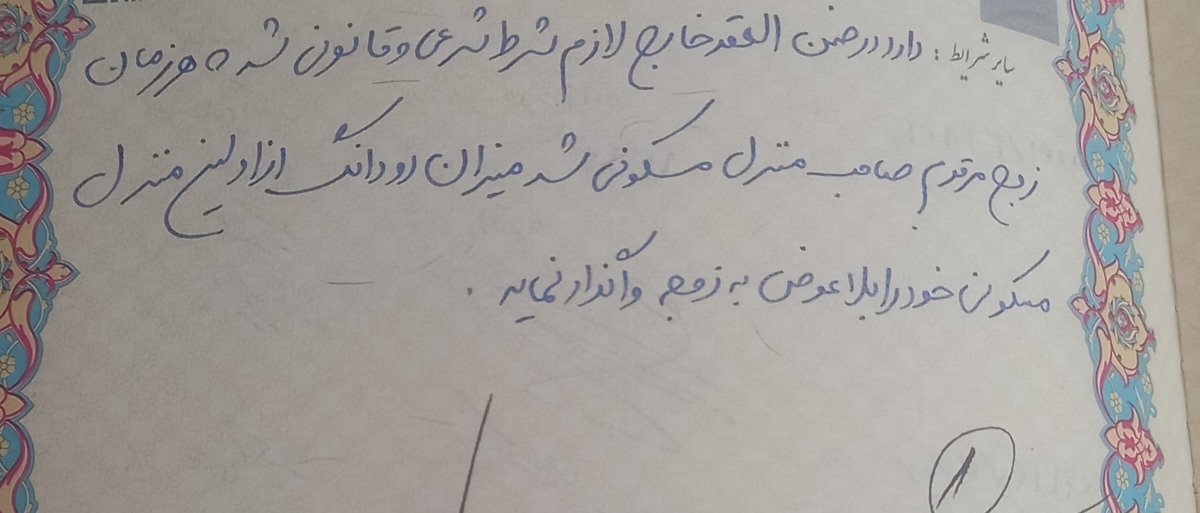 سایر شرایط : دارد در ضمن العقد خارج لازم شرط شرعی و قانونی شد ه هر زمان
زوج مرقوم صاحب منزل مسکونی شد میزان دو دانگ از اولین منزل
مسکونی خود را بلاعوض به زوجه واگذار نماید .
۱